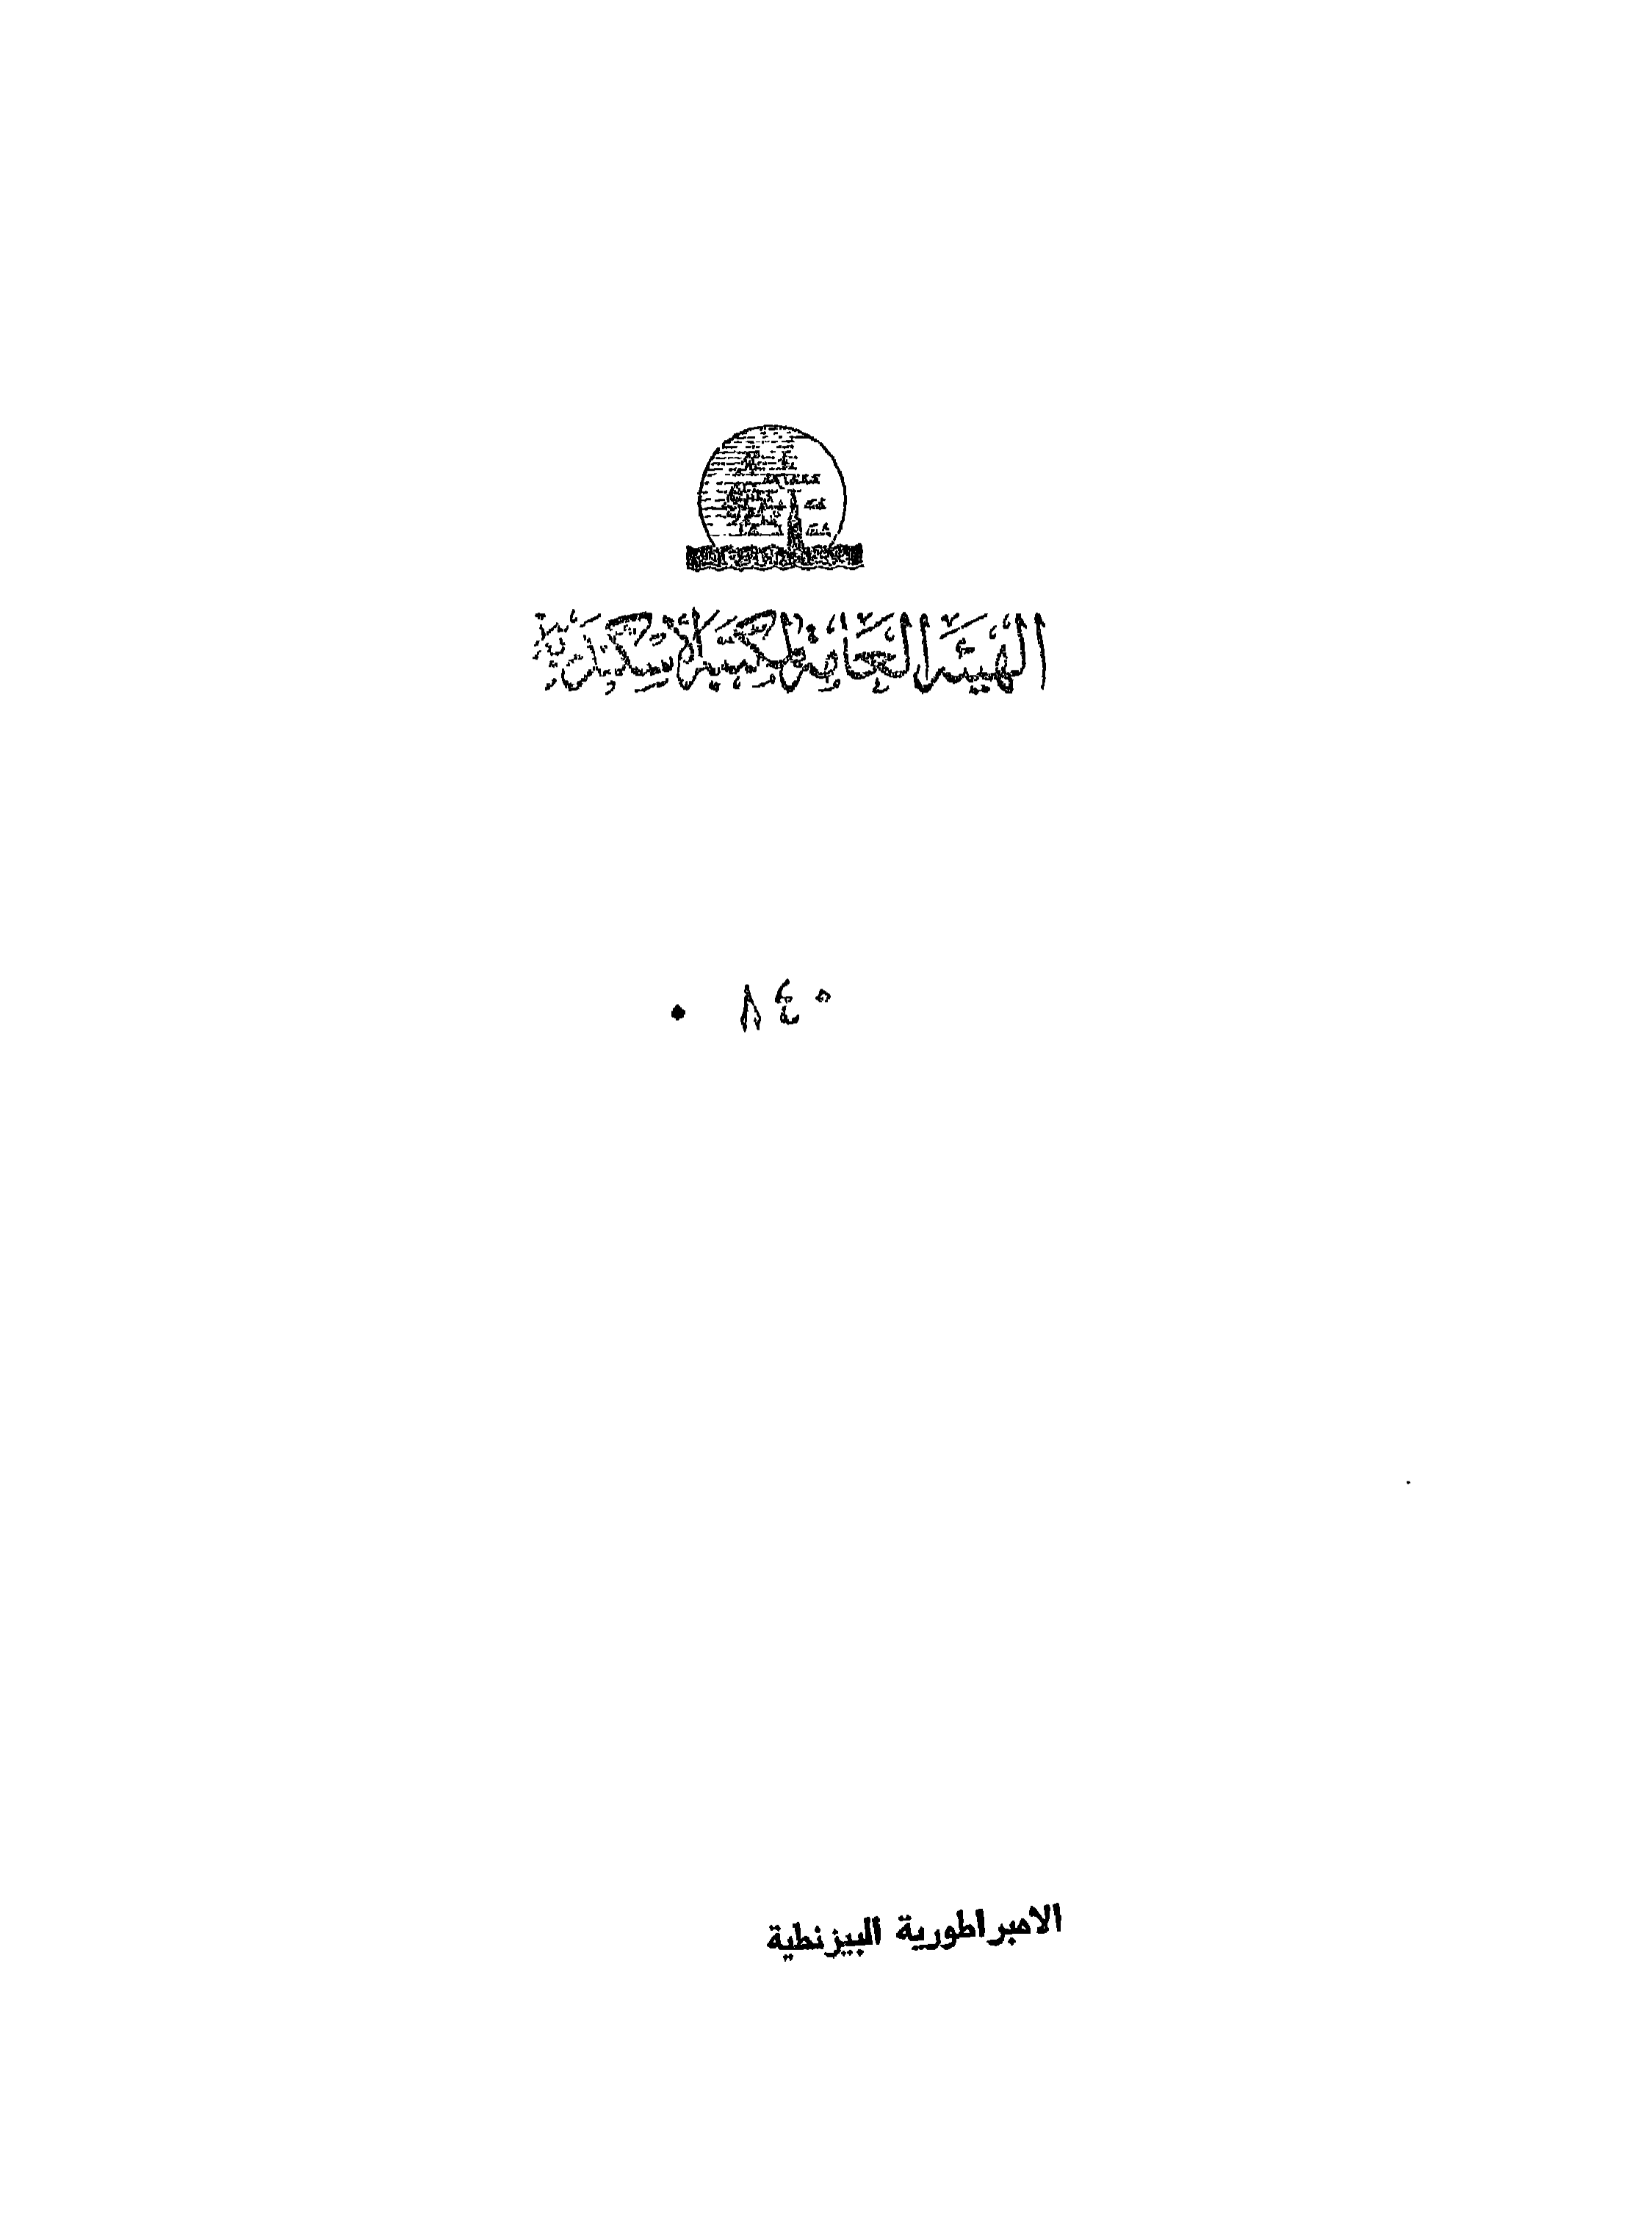 الهيئة العامة لمكتبة الاسكندرية
٨٤٥
الامبراطورية البيزنطية